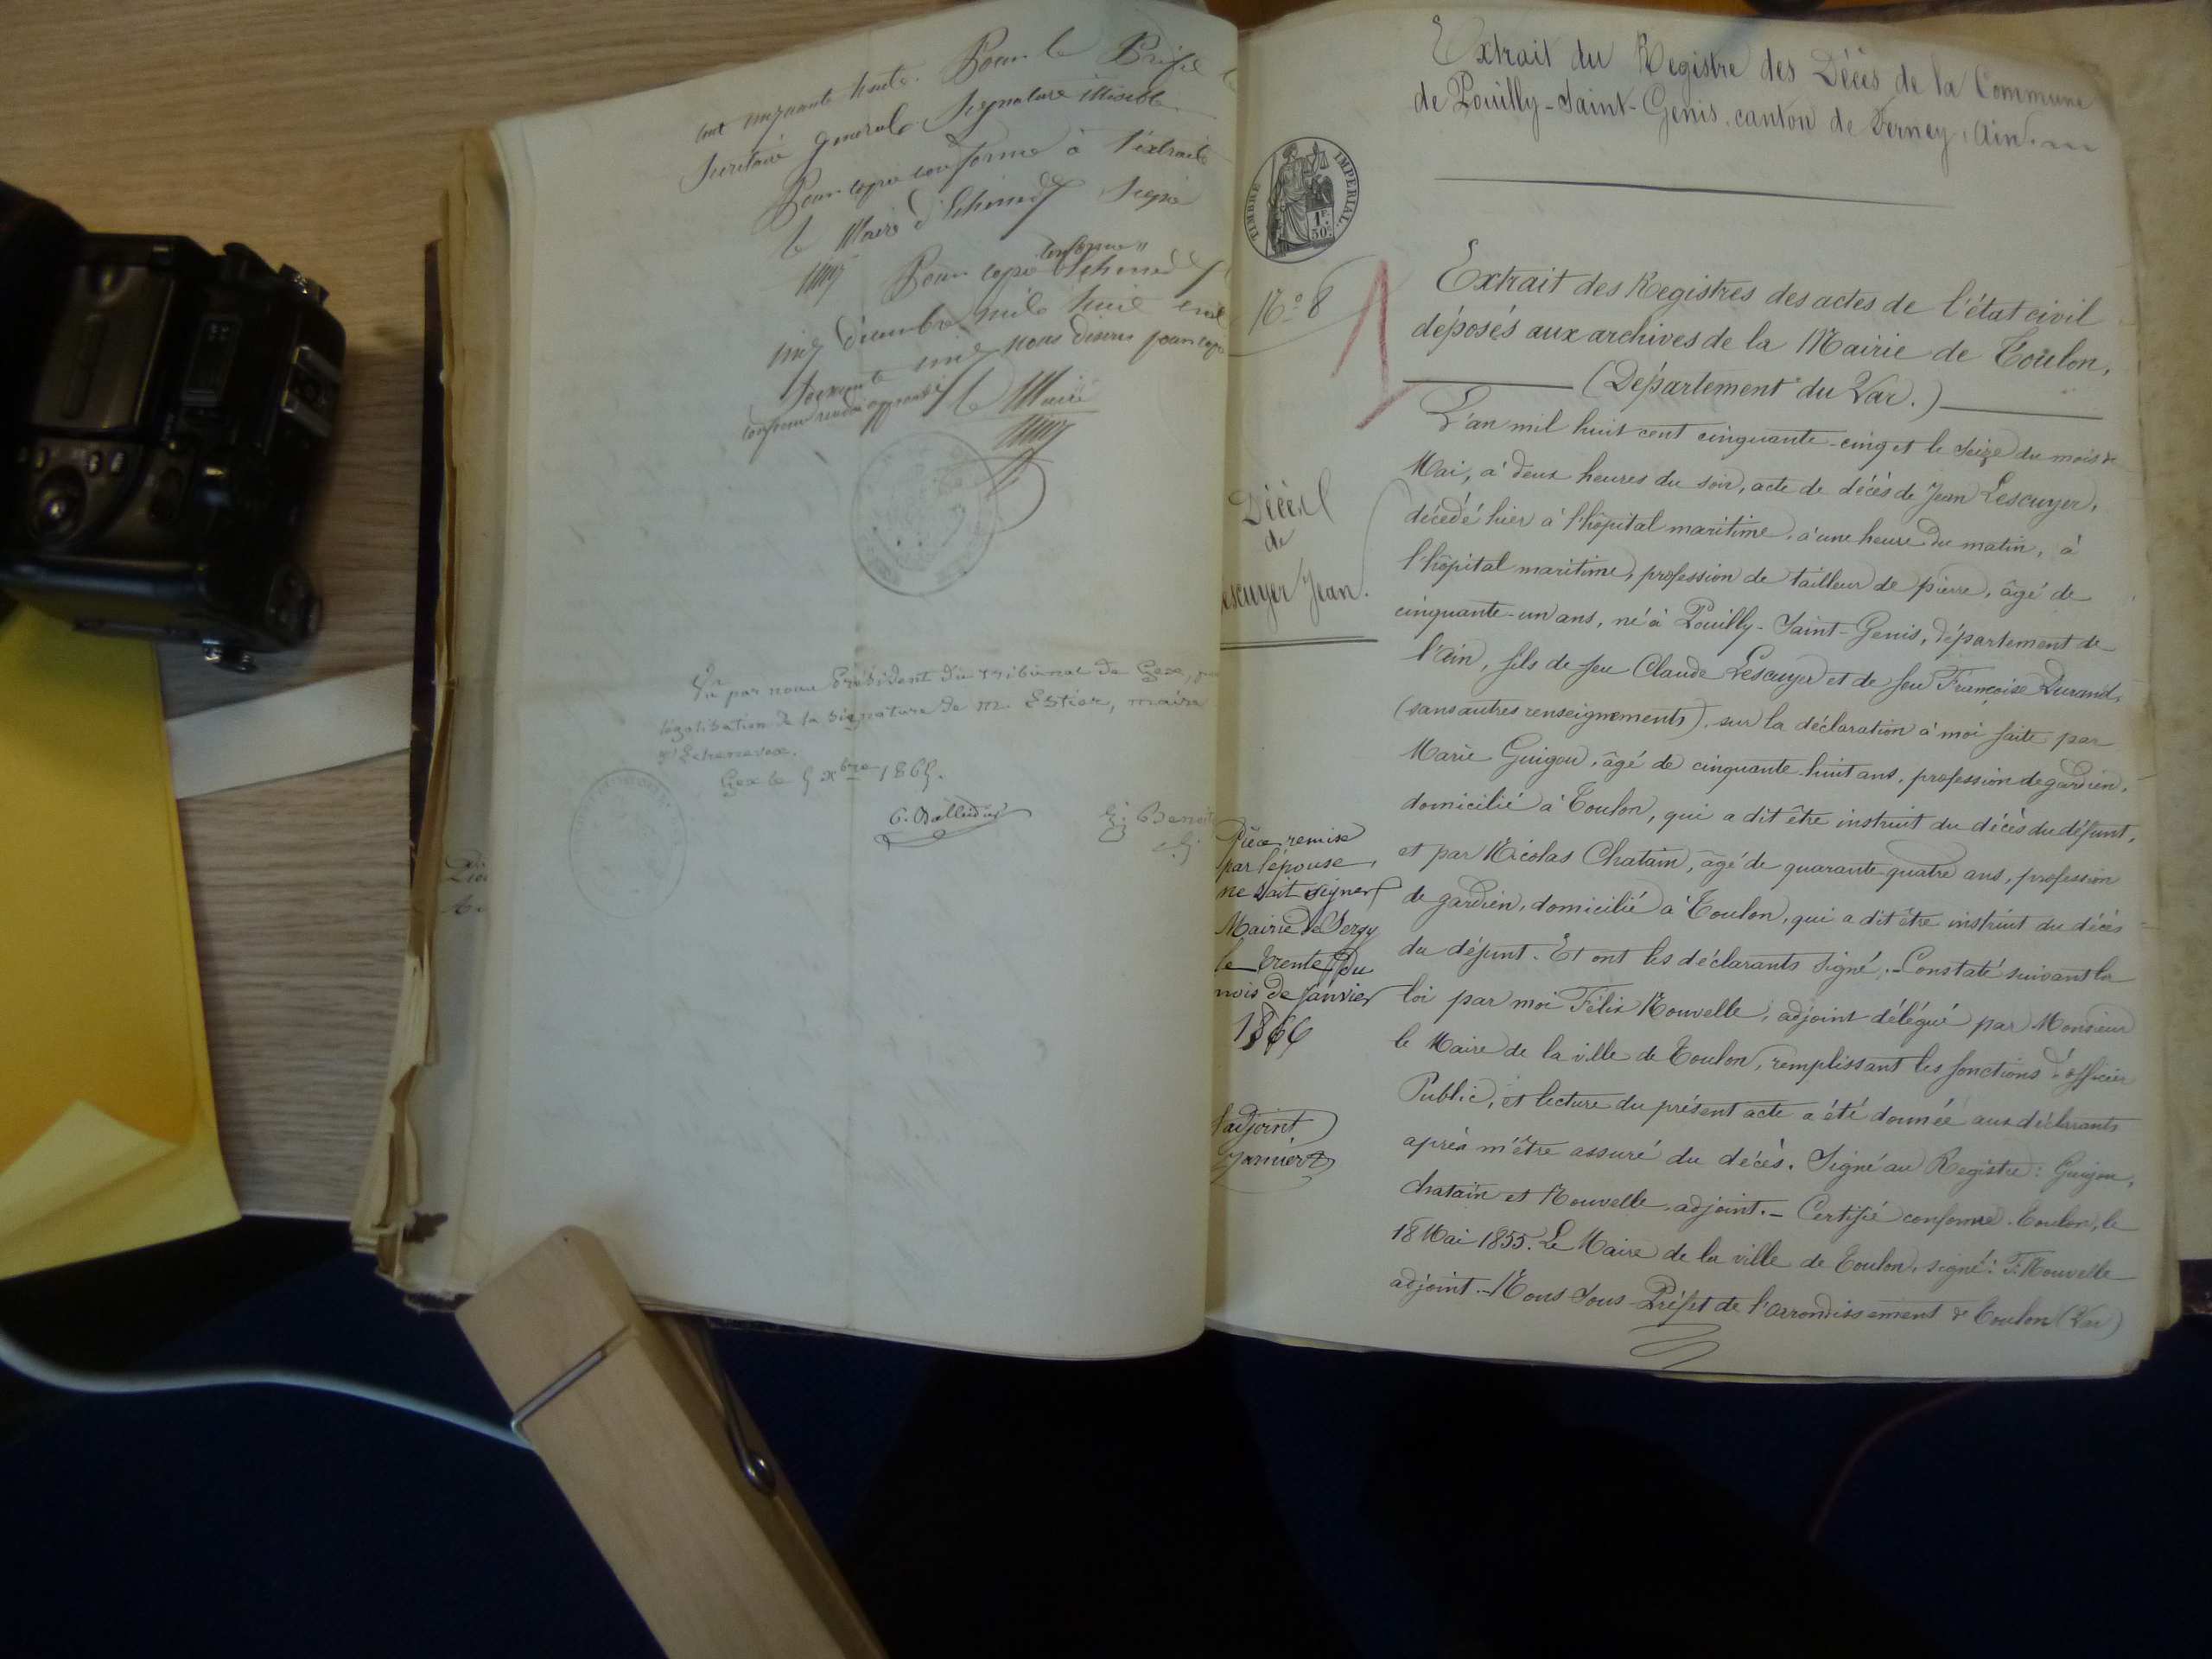 cent cinquante huit. Pour le Préfet le
Secrétaire général Signature illisible
Pour copie conforme à l'extrait
le Maire d'Echenevex Signé
Pour copie conforme Echenevex
cinq décembre mil huit cent
soixante cinq nous disons pour copie
conforme
le Maire
Vu par nous Président du tribunal de Gex, pour
légalisation de la signature de m. Estier, maire
d'Echenevex.
Gex le 5 Xbre 1865.
G. Benoit
Extrait du Registre des Décès de la Commune
de Pouilly-Saint-Genis, canton de Ferney, Ain.
TIMBRE IMPERIAL
1F.
50c.
No 8
Extrait des Registres des actes de l'état civil
déposés aux archives de la Mairie de Toulon,
(Département du Var.)
Décès
de
Lescuyer Jean.
L'an mil huit cent cinquante-cinq et le seize du mois de
Mai, à deux heures du soir, acte de décès de Jean Lescuyer,
décédé hier à l'hôpital maritime, à une heure du matin, à
l'hôpital maritime, profession de tailleur de pierre, âgé de
cinquante-un ans, né à Pouilly-Saint-Genis, département de
l'Ain, fils de feu Claude Lescuyer et de feu Françoise Durand,
(sans autres renseignements). sur la déclaration à moi faite par
Marie Guigou, âgé de cinquante-huit ans, profession de gardien,
domicilié à Toulon, qui a dit être instruit du décès du défunt,
et par Nicolas Chatain, âgé de quarante quatre ans, profession
de gardien, domicilié à Toulon, qui a dit être instruit du décès
du défunt. Et ont les déclarants signé. Constaté suivant la
loi par moi Félix Nouvelle, adjoint délégué par Monsieur
le Maire de la ville de Toulon, remplissant les fonctions d'officier
Public, et lecture du présent acte a été donnée aux déclarants
après m'être assuré du décès. Signé au Registre: Guigou,
Chatain et Nouvelle, adjoint. Certifié conforme. Toulon, le
18 Mai 1855. Le Maire de la ville de Toulon, signé: F. Nouvelle
adjoint. Nous Sous-Préfet de l'arrondissement de Toulon (Var)
Pièce remise
par l'épouse,
ne sait signer
Mairie de Sergy
le trente du
mois de Janvier
1866
L'adjoint
Janvier